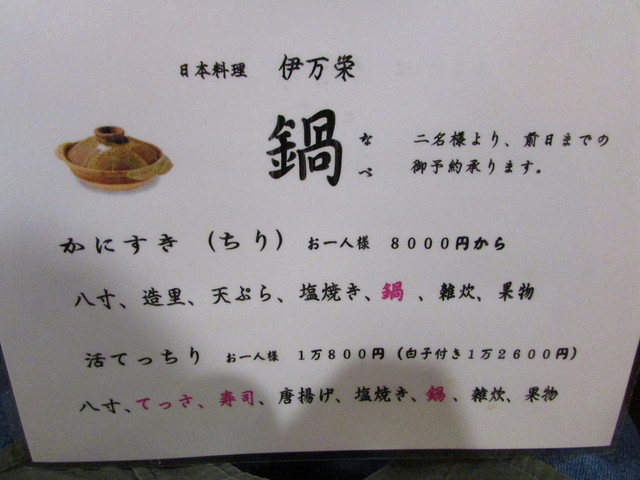 日本料理 伊万栄
鍋 なべ
二名様より、前日までの
御予約承ります。
かにすき （ちり） お一人様 8000円から
八寸、造里、天ぷら、塩焼き、鍋 、雑炊、果物
活てっちり お一人様 1万800円（白子付き1万2600円）
八寸、てっさ、寿司、唐揚げ、塩焼き、鍋、雑炊、果物